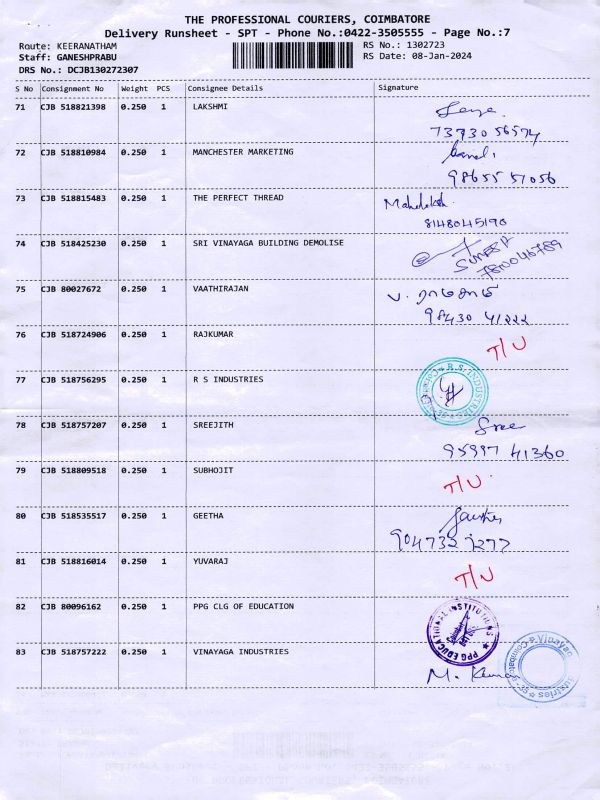 THE PROFESSIONAL COURIERS, COIMBATORE
Delivery Runsheet - SPT - Phone No.:0422-3505555 - Page No.:7
Route: KEERANATHAM
RS No.: 1302723
Staff: GANESHPRABU
RS Date: 08-Jan-2024
DRS No.: DCJB130272307
S No Consignment No Weight PCS Consignee Details Signature
71 CJB 518821398 0.250 1 LAKSHMI
72 CJB 518810984 0.250 1 MANCHESTER MARKETING
98655 57056
73 CJB 518815483 0.250 1 THE PERFECT THREAD
8148045190
74 CJB 518425230 0.250 1 SRI VINAYAGA BUILDING DEMOLISE
75 CJB 80027672 0.250 1 VAATHIRAJAN
98430 41222
76 CJB 518724906 0.250 1 RAJKUMAR T/U
77 CJB 518756295 0.250 1 R S INDUSTRIES
R.S. INDUSTRIES
78 CJB 518757207 0.250 1 SREEJITH Sree
95997 41360
79 CJB 518809518 0.250 1 SUBHOJIT T/U
80 CJB 518535517 0.250 1 GEETHA
81 CJB 518816014 0.250 1 YUVARAJ T/U
82 CJB 80096162 0.250 1 PPG CLG OF EDUCATION
PPG EDUCATIONAL INSTITUTIONS
83 CJB 518757222 0.250 1 VINAYAGA INDUSTRIES
M. Kumar